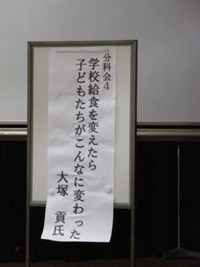 分科会4
学校給食を変えたら
子どもたちがこんなに変わった
大塚 貢氏